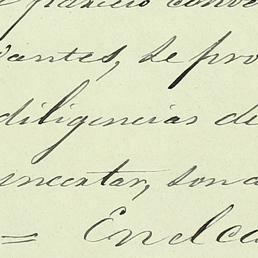 parecio conve
vantes, se pro
diligencias de
nectar, son a
= En el ca